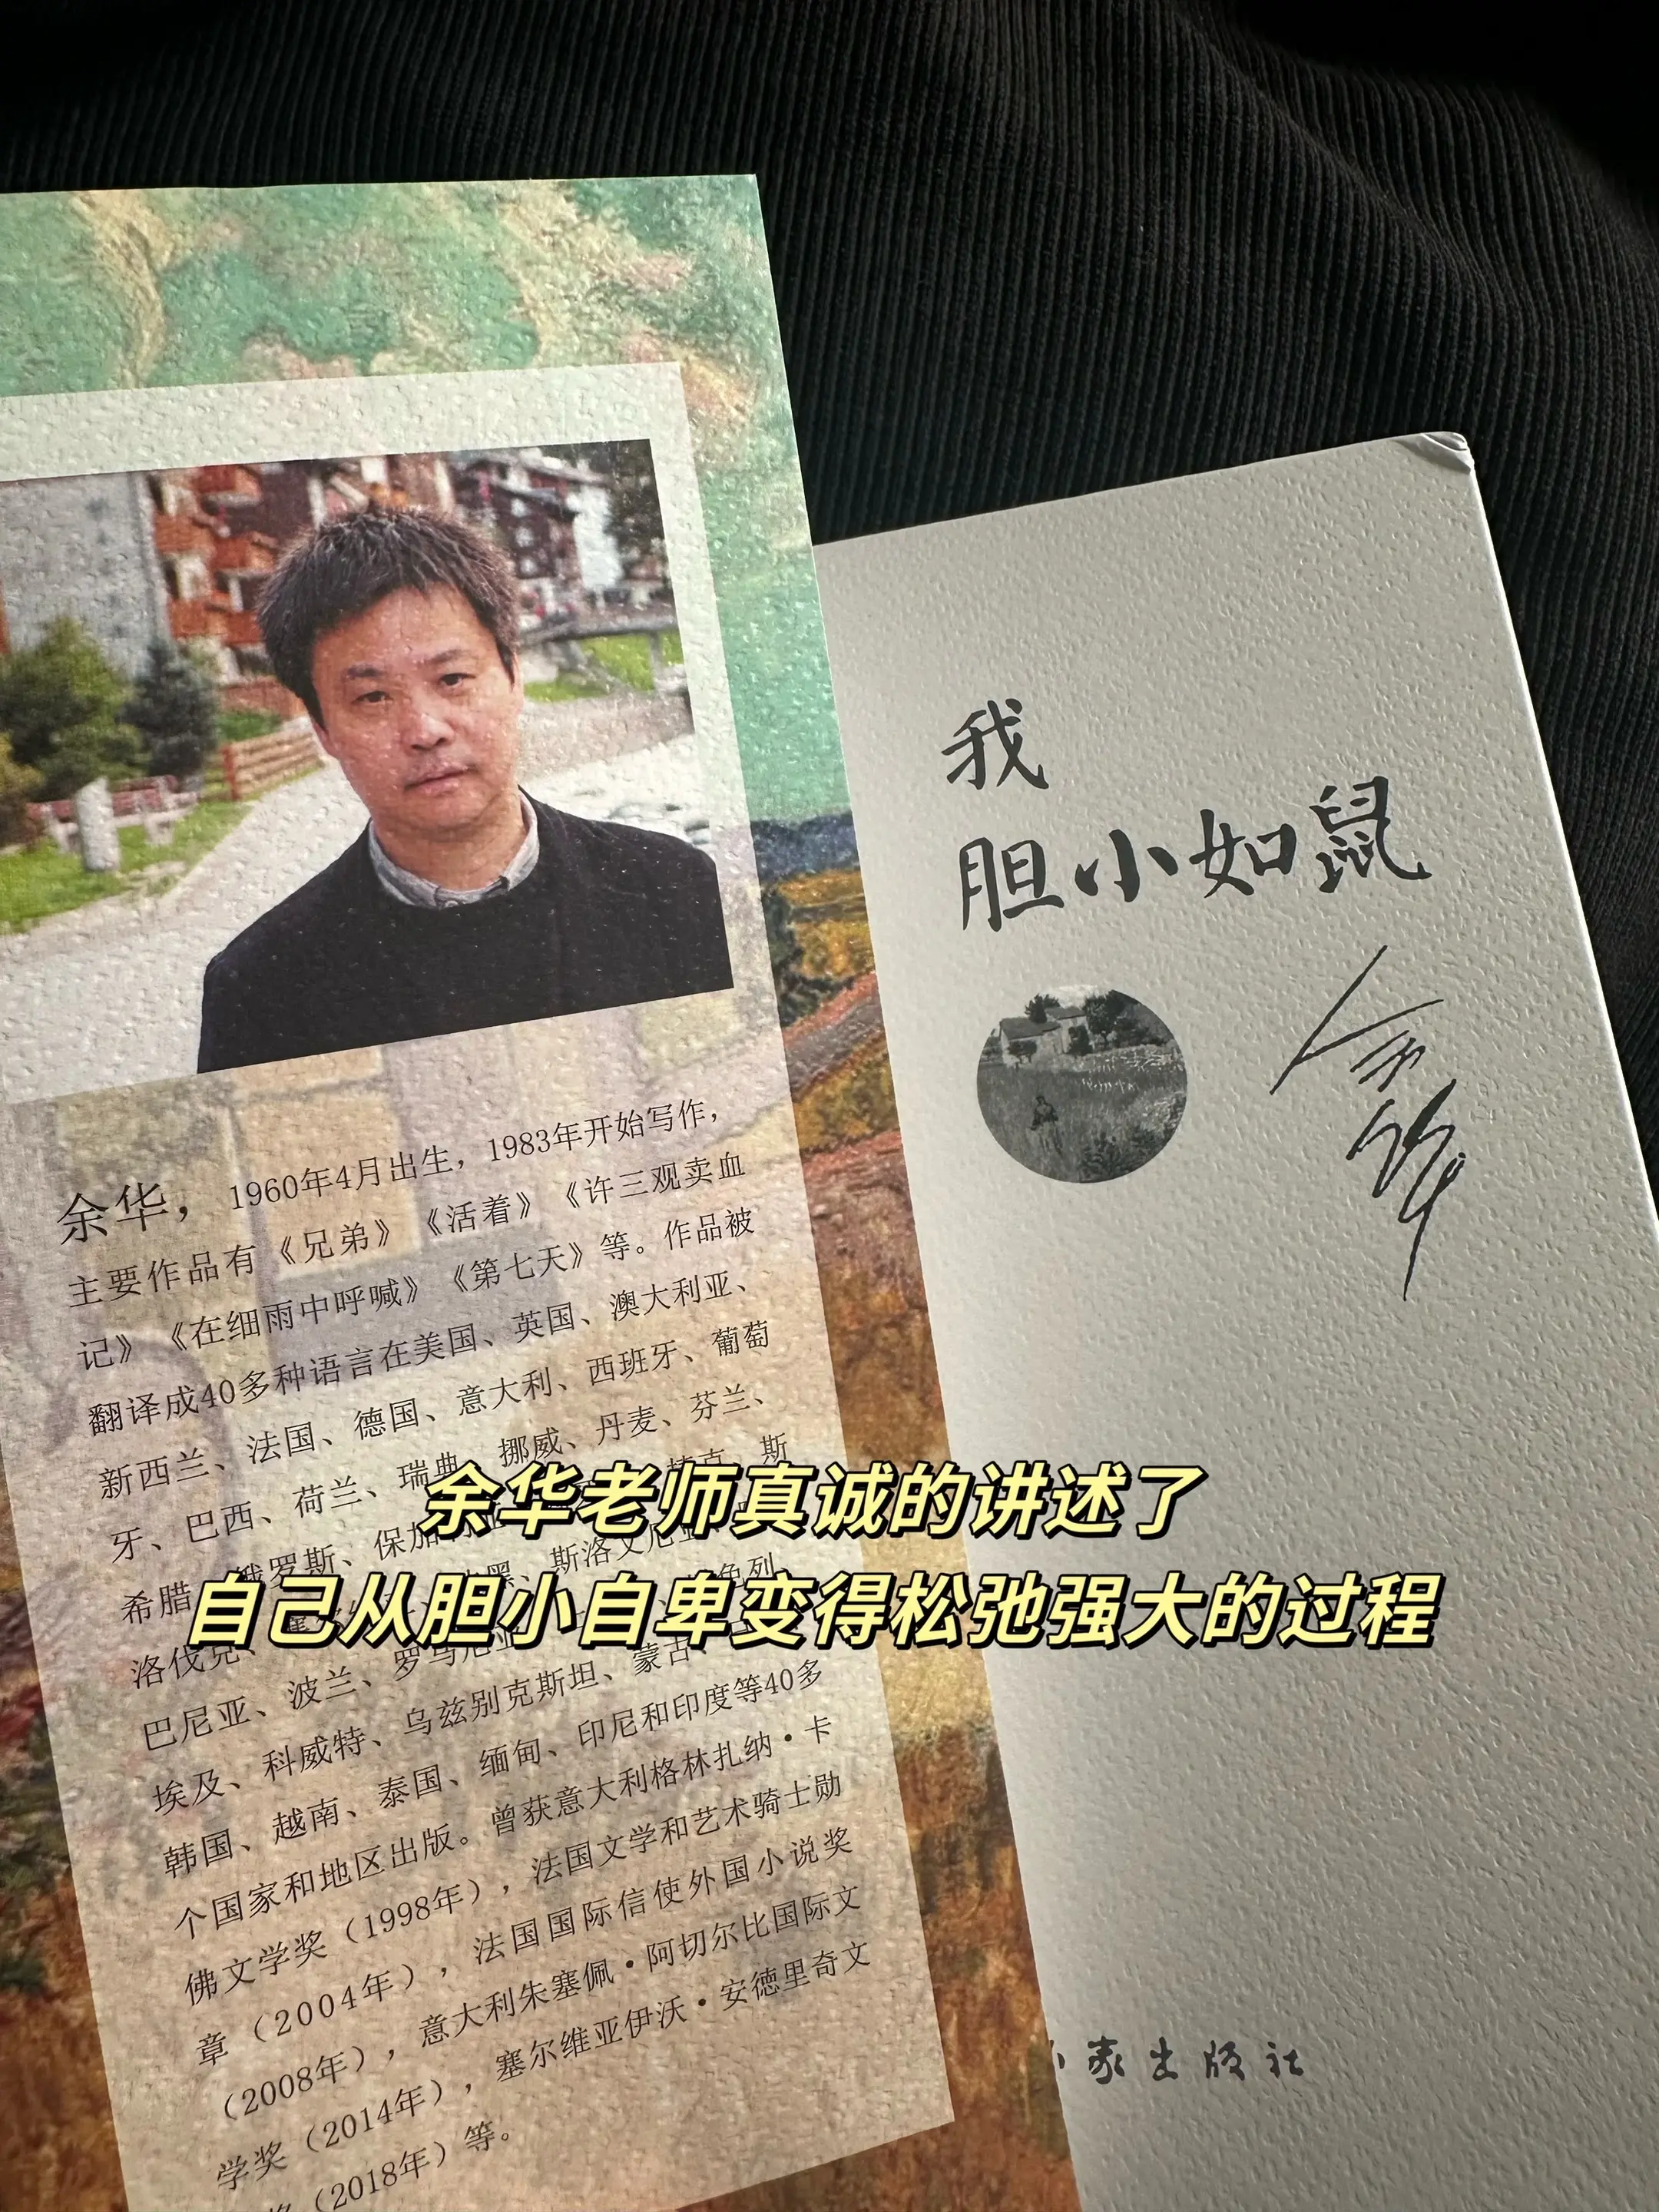 余华，1960年4月出生，1983年开始写作，
主要作品有《兄弟》《活着》《许三观卖血
记》《在细雨中呼喊》《第七天》等。作品被
翻译成40多种语言在美国、英国、澳大利亚、
新西兰、法国、德国、意大利、西班牙、葡萄
牙、巴西、荷兰、瑞典、挪威、丹麦、芬兰、
希腊、俄罗斯、保加 斯
洛伐克、 黑、斯洛文尼亚 色列
巴尼亚、波兰、罗马尼亚
埃及、科威特、乌兹别克斯坦、蒙古、
韩国、越南、泰国、缅甸、印尼和印度等40多
个国家和地区出版。曾获意大利格林扎纳·卡
佛文学奖（1998年），法国文学和艺术骑士勋
章（2004年），法国国际信使外国小说奖
（2008年），意大利朱塞佩·阿切尔比国际文
学奖（2014年），塞尔维亚伊沃·安德里奇文
（2018年）等。
我
胆小如鼠
余华
家出版社
余华老师真诚的讲述了
自己从胆小自卑变得松弛强大的过程